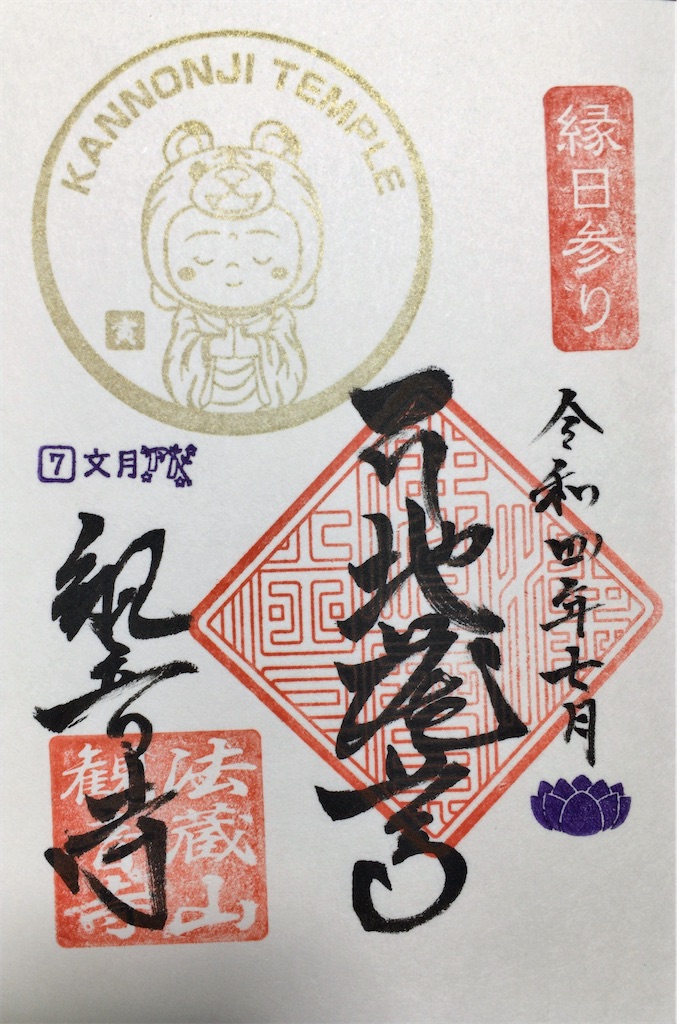 KANNONJI TEMPLE
寅
縁日参り
令和四年七月
地蔵尊
7 文月
観音寺
法蔵山
観音寺